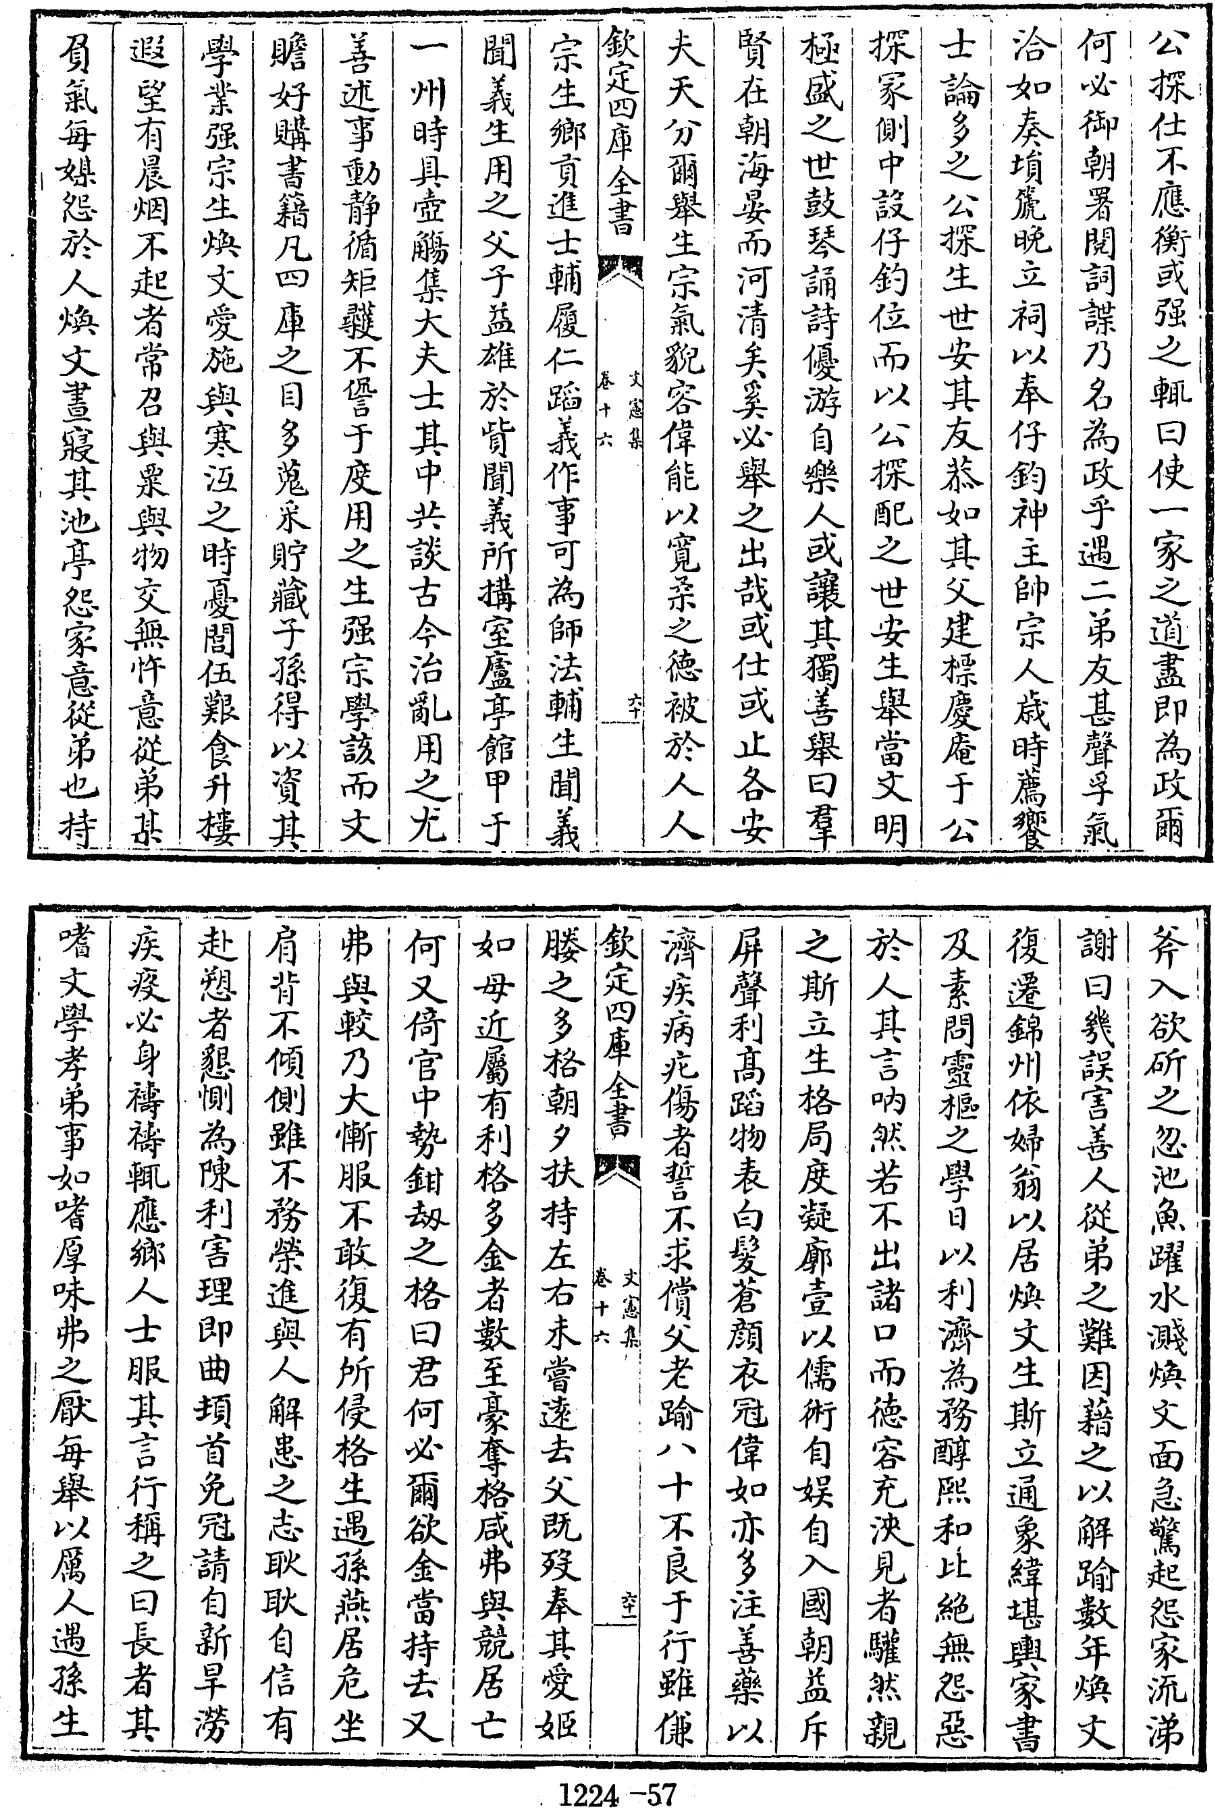 公探仕不應衡或强之輒曰使一家之道盡即為政爾
何必御朝署閱詞諜乃名為政乎遇二弟友甚聲孚氣
洽如奏塤篪晚立祠以奉仔鈞神主帥宗人歳時薦饗
士論多之公探生世安其友恭如其父建標慶庵于公
探冢側中設仔鈞位而以公探配之世安生舉當文明
極盛之世鼓琴誦詩優游自樂人或讓其獨善舉曰羣
賢在朝海晏而河清矣奚必舉之出哉或仕或止各安
夫天分爾舉生宗氣貌容偉能以寛柔之徳被於人人
欽定四庫全書
文憲集
卷十六
六十
宗生鄉貢進士輔履仁蹈義作事可為師法輔生聞義
聞義生用之父子益雄於貲聞義所搆室廬亭館甲于
一州時具壺觴集大夫士其中共談古今治亂用之尤
善述事動静循矩矱不諐于度用之生强宗學該而文
贍好購書籍凡四庫之目多蒐采貯藏子孫得以資其
學業强宗生煥文愛施與寒沍之時憂閭伍艱食升樓
遐望有晨烟不起者常召與粟與物交無忤意從弟某
負氣每媒怨於人煥文晝寢其池亭怨家意從弟也持
斧入欲斫之忽池魚躍水濺煥文面急驚起怨家流涕
謝曰幾誤害善人從弟之難因藉之以解踰數年煥文
復遷錦州依婦翁以居煥文生斯立通象緯堪輿家書
及素問靈樞之學日以利濟為務醇熙和比絶無怨惡
於人其言吶然若不出諸口而徳容充泱見者驩然親
之斯立生格局度凝廓壹以儒術自娱自入國朝益斥
屏聲利髙蹈物表白髮蒼顔衣冠偉如亦多注善藥以
濟疾病疕傷者誓不求償父老踰八十不良于行雖傔
欽定四庫全書
文憲集
卷十六
六十一
媵之多格朝夕扶持左右未嘗逺去父既歿奉其愛姬
如母近屬有利格多金者數至豪奪格咸弗與競居亡
何又倚官中勢鉗刼之格曰君何必爾欲金當持去又
弗與較乃大慚服不敢復有所侵格生遇孫燕居危坐
肩背不傾側雖不務榮進與人解患之志耿耿自信有
赴愬者懇惻為陳利害理即曲頓首免冠請自新旱澇
疾疫必身禱禱輒應鄉人士服其言行稱之曰長者其
嗜文學孝弟事如嗜厚味弗之厭每舉以厲人遇孫生
1224-57